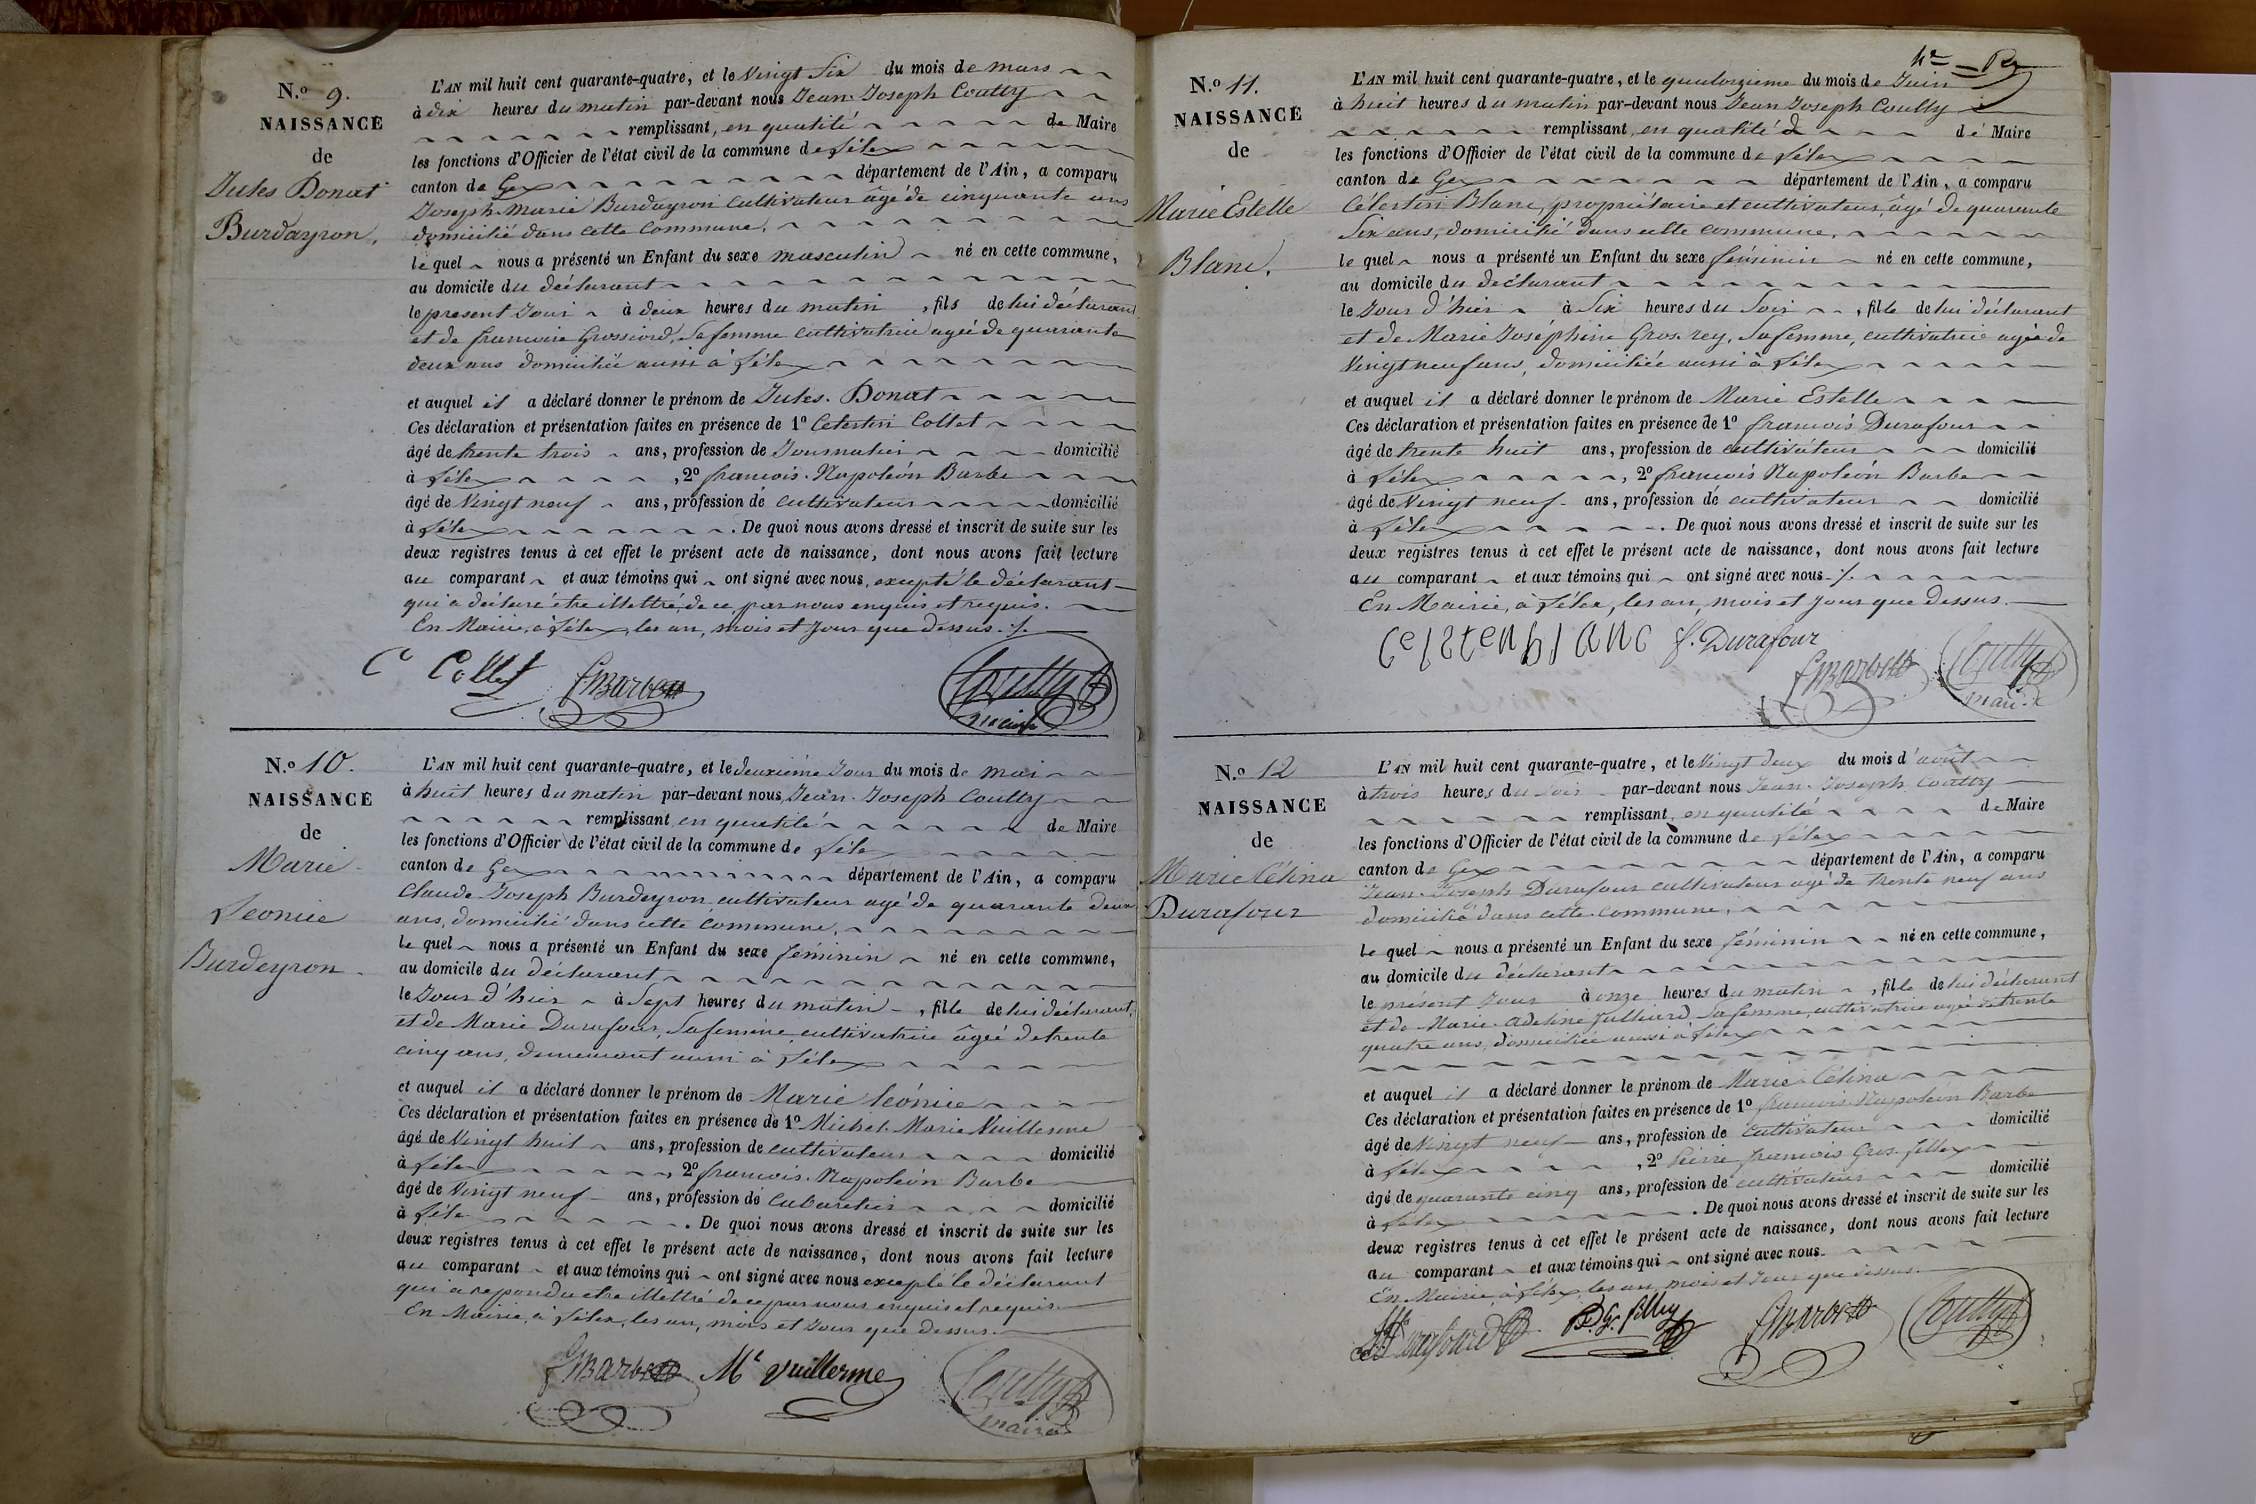 N.o 9.
NAISSANCE
de
Jules Donat
Burdayron.
L'AN mil huit cent quarante-quatre, et le Vingt Six du mois de mars
à dix heures du matin par-devant nous Jean-Joseph Coutty
remplissant, en qualité de Maire
les fonctions d'Officier de l'état civil de la commune de Lélex
canton de Gex département de l'Ain, a comparu
Joseph-Marie Burdayron cultivateur âgé de cinquante ans
domicilié dans cette commune.
le quel nous a présenté un Enfant du sexe masculin né en cette commune,
au domicile du déclarant
le présent Jour à deux heures du matin, fils de lui déclarant
et de francoise Grossiord, Sa femme cultivatrice agée de quarante
deux ans domiciliée aussi à Lélex
et auquel il a déclaré donner le prénom de Jules. Donat
Ces déclaration et présentation faites en présence de 1o Celestin Collet
âgé de trente trois ans, profession de Journalier domicilié
à Lélex, 2o francois-Napoléon Barbe
âgé de Vingt neuf ans, profession de cultivateur domicilié
à Lélex. De quoi nous avons dressé et inscrit de suite sur les
deux registres tenus à cet effet le présent acte de naissance, dont nous avons fait lecture
au comparant et aux témoins qui ont signé avec nous, excepté le déclarant
qui a déclaré être illettré, de ce par nous enquis et requis.
En Mairie, à Lélex, les an, mois et jour que dessus ./.
C Collet fNBarbe Coutty
maire
N.o 10.
NAISSANCE
de
Marie
Leonice
Burdeyron
L'AN mil huit cent quarante-quatre, et le deuxième Jour du mois de mai
à huit heures du matin par-devant nous, Jean-Joseph Coutty
remplissant en qualité de Maire
les fonctions d'Officier de l'état civil de la commune de Lélex
canton de Gex département de l'Ain, a comparu
Claude-Joseph Burdeyron cultivateur agé de quarante deux
ans, domicilié dans cette commune,
le quel nous a présenté un Enfant du sexe féminin né en cette commune,
au domicile du déclarant
le Jour d'hier à Sept heures du matin, fille de lui déclarant,
et de Marie Durafour, Sa femme, cultivatrice âgée de trente
cinq ans, demeurant aussi à Lélex
et auquel il a déclaré donner le prénom de Marie Léonice
Ces déclaration et présentation faites en présence de 1o Michel-Marie Vuillerme
âgé de Vingt huit ans, profession de cultivateur domicilié
à Lélex, 2o francois-Napoléon Barbe
âgé de Vingt neuf ans, profession de Cabaretier domicilié
à Lélex. De quoi nous avons dressé et inscrit de suite sur les
deux registres tenus à cet effet le présent acte de naissance, dont nous avons fait lecture
au comparant et aux témoins qui ont signé avec nous excepté le déclarant
qui a répondu etre illettré de ce par nous enquis et requis.
En Mairie, à Lélex, les an, mois et Jour que dessus.
fNBarbe Ml Vuillerme Coutty
maire
N.o 11.
NAISSANCE
de
Marie Estelle
Blanc.
L'AN mil huit cent quarante-quatre, et le quatorzième du mois de Juin
à huit heures du matin par-devant nous Jean Joseph Coutty
remplissant en qualité de Maire
les fonctions d'Officier de l'état civil de la commune de Lélex
canton de Gex département de l'Ain, a comparu
Célestin Blanc, propriétaire et cultivateur, âgé de quarante
Six ans, domicilié dans cette commune.
le quel nous a présenté un Enfant du sexe féminin né en cette commune,
au domicile du déclarant
le Jour d'hier à Six heures du Soir, fille de lui déclarant
et de Marie Joséphine Gros-rey, Sa femme, cultivatrice agée de
Vingt neuf ans, domiciliée aussi à Lélex
et auquel il a déclaré donner le prénom de Marie Estelle
Ces déclaration et présentation faites en présence de 1o francois Durafour
âgé de trente huit ans, profession de cultivateur domicilié
à Lélex, 2o francois Napoléon Barbe
âgé de Vingt neuf ans, profession de cultivateur domicilié
à Lélex. De quoi nous avons dressé et inscrit de suite sur les
deux registres tenus à cet effet le présent acte de naissance, dont nous avons fait lecture
au comparant et aux témoins qui ont signé avec nous ./.
En Mairie, à Lélex, les an, mois et jour que dessus.
Celstenblanc f. Durafour
fNBarbe Coutty
maire
N.o 12
NAISSANCE
de
Marie Célina
Durafour
L'AN mil huit cent quarante-quatre, et le Vingt deux du mois d'août
à trois heures du soir par-devant nous Jean-Joseph Coutty
remplissant, en qualité de Maire
les fonctions d'Officier de l'état civil de la commune de Lélex
canton de Gex département de l'Ain, a comparu
Jean-Joseph Durafour cultivateur agé de trente neuf ans
domicilié dans cette commune,
le quel nous a présenté un Enfant du sexe féminin né en cette commune,
au domicile du déclarant
le présent Jour à onze heures du matin, fille de lui déclarant
et de Marie-Adeline Julliard Sa femme, cultivatrice agée de trente
quatre ans, domiciliée aussi à Lélex
et auquel il a déclaré donner le prénom de Marie-Célina
Ces déclaration et présentation faites en présence de 1o francois-Napoléon Barbe
âgé de Vingt neuf ans, profession de cultivateur domicilié
à Lélex, 2o Pierre francois Gros-fillex
âgé de quarante cinq ans, profession de cultivateur domicilié
à Lélex. De quoi nous avons dressé et inscrit de suite sur les
deux registres tenus à cet effet le présent acte de naissance, dont nous avons fait lecture
au comparant et aux témoins qui ont signé avec nous.
En Mairie, à Lélex, les an, mois et Jour que dessus.
fNBarbe Coutty